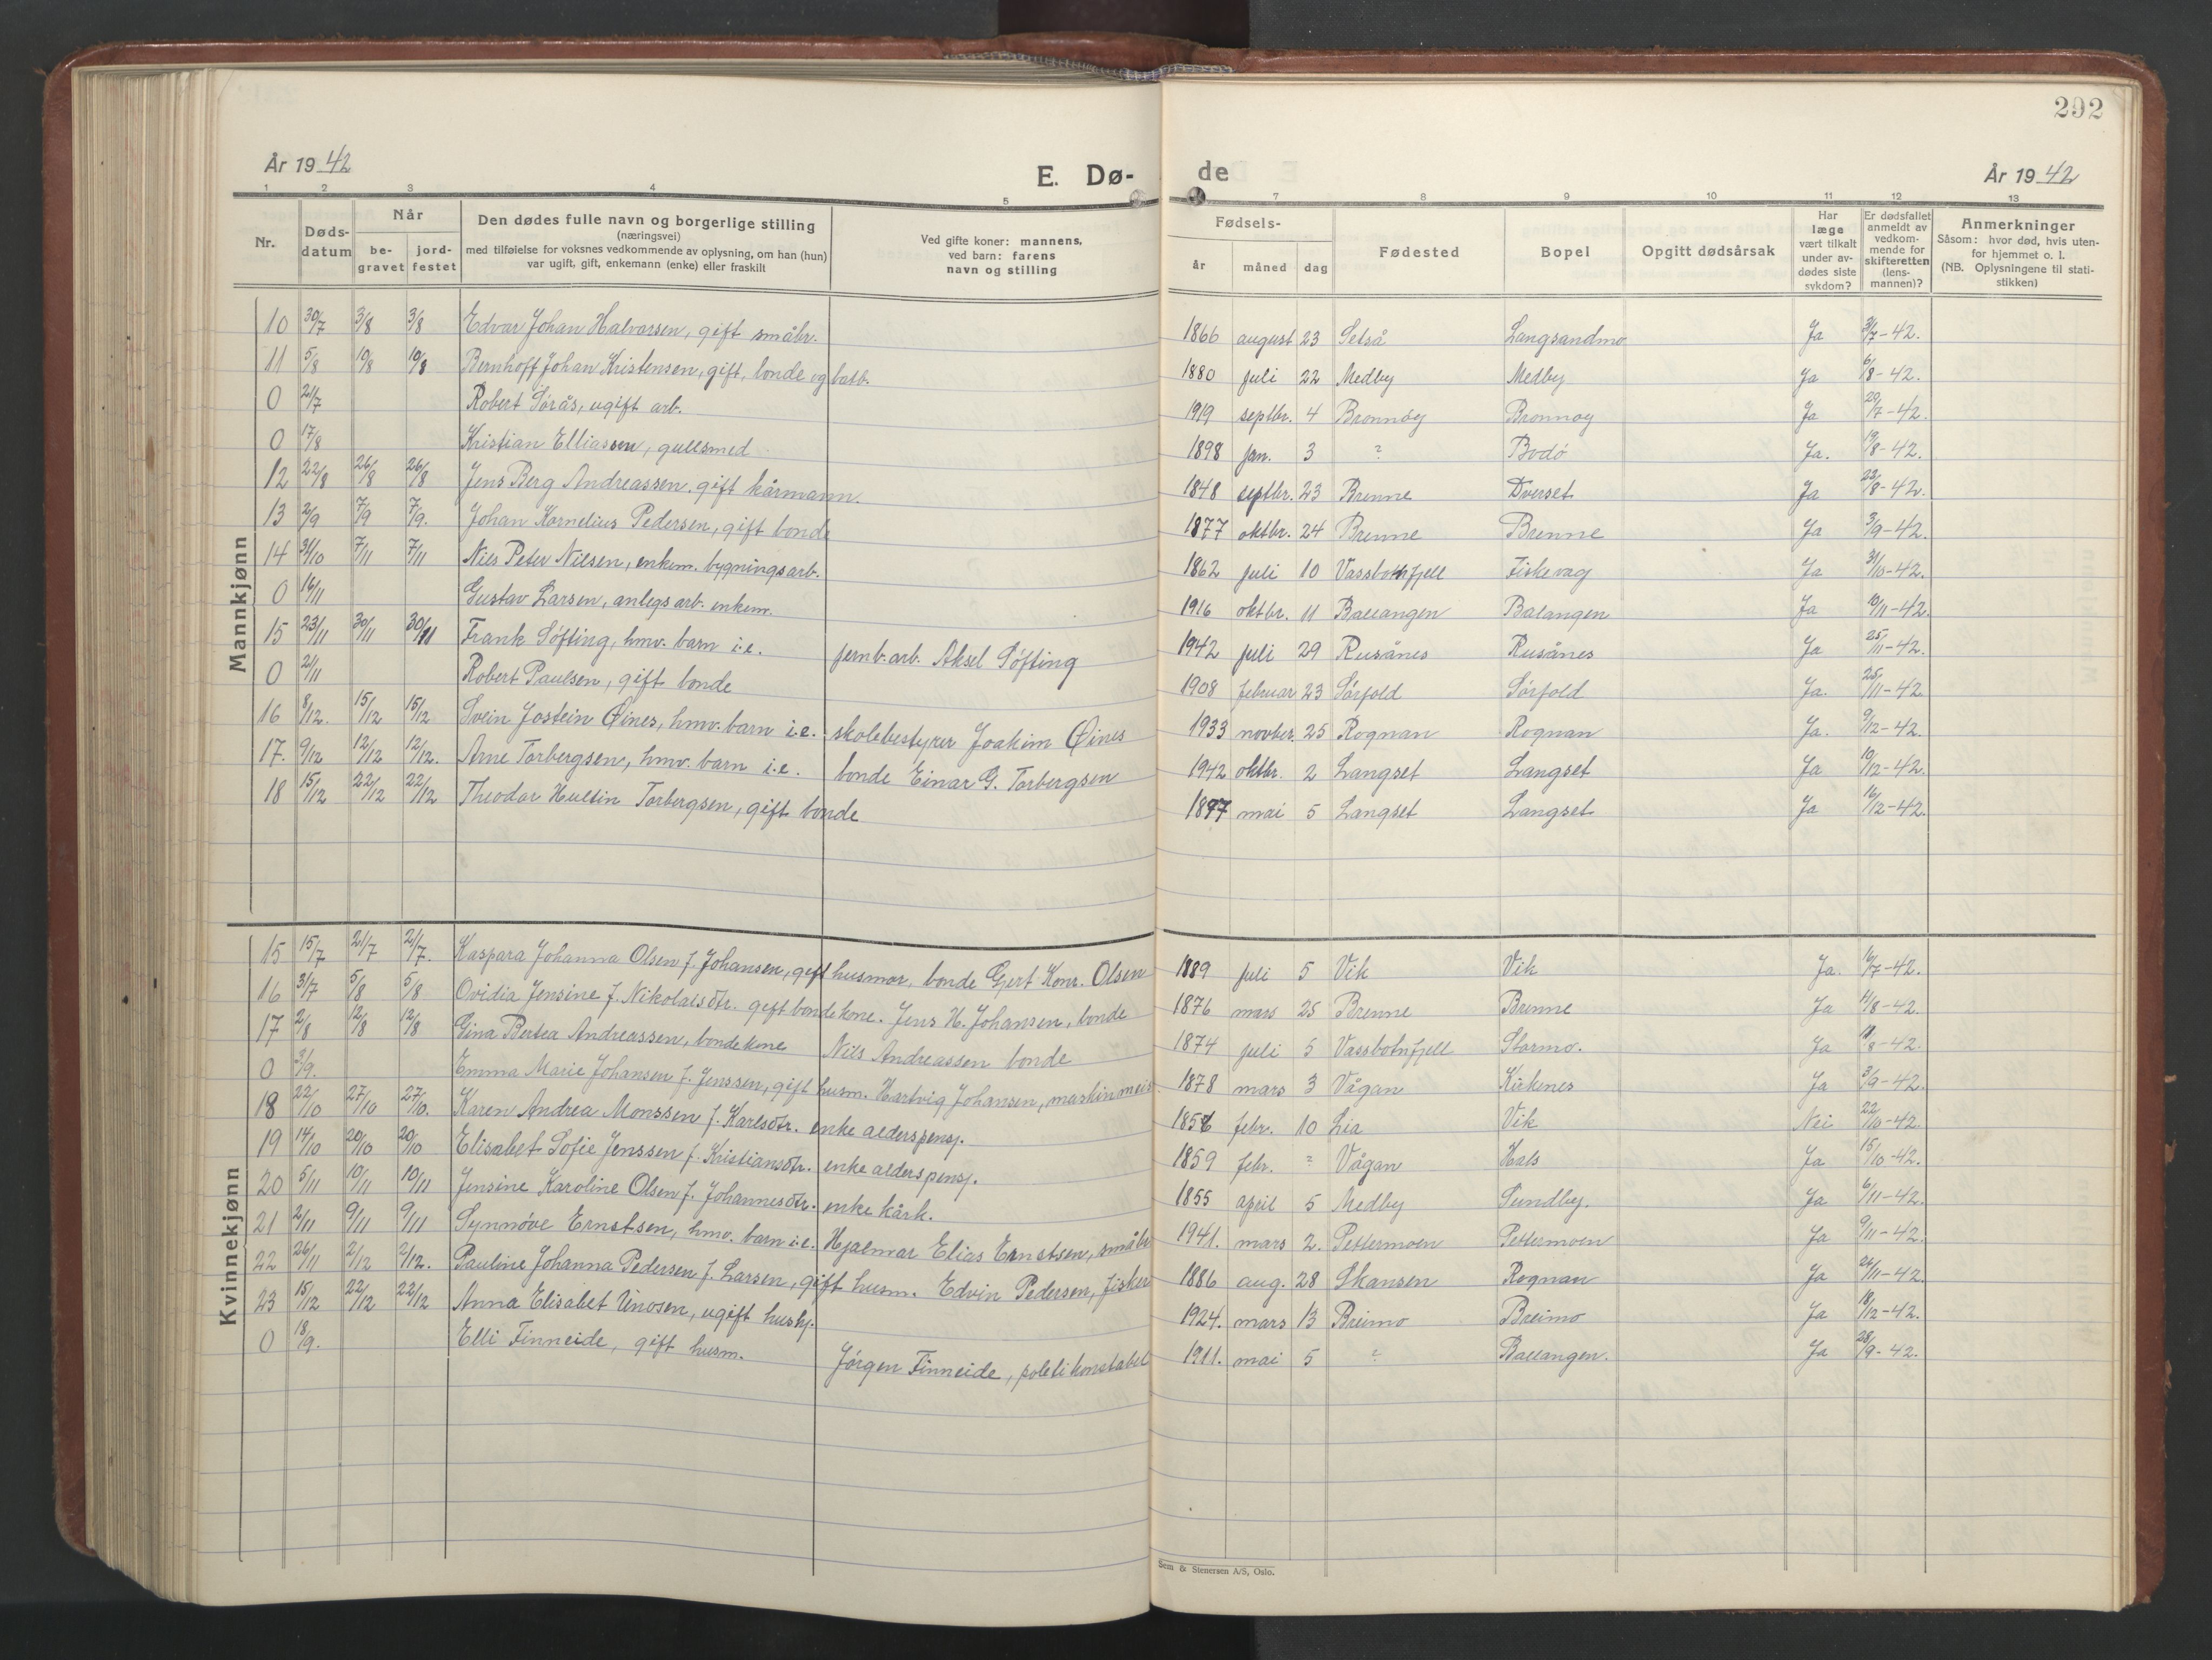 292
År 1942
E. Dø-
de
År 1942
1 2 3 4 5 7 8 9 10 11 12 13
Nr.
Døds-
datum
Når
be-
gravet
jord-
festet
Den dødes fulle navn og borgerlige stilling
(næringsvei)
med tilføielse for voksnes vedkommende av oplysning, om han (hun)
var ugift, gift, enkemann (enke) eller fraskilt
Ved gifte koner: mannens,
ved barn: farens
navn og stilling
Fødsels-
år måned dag
Fødested
Bopel
Opgitt dødsårsak
Har
læge
vært tilkalt
under av-
dødes siste
sykdom?
Er dødsfallet
anmeldt av
vedkom-
mende for
skifteretten
(lens-
mannen)?
Anmerkninger
Såsom: hvor død, hvis uten-
for hjemmet o. l.
(NB. Oplysningene til stati-
stikken)
Mannkjønn
10 30/7 3/8 3/8 Edvar Johan Halvorsen, gift småbr. 1866 august 23 Setså Langsandmo Ja 31/7-42.
11 5/8 10/8 10/8 Bernhoff Johan Kristensen, gift, bonde og båtb. 1880 juli 22 Medby Medby Ja 6/8-42.
0 21/7 Robert Sørås, ugift arb. 1919 septbr. 4 Brønnøy Brønnøy Ja 29/7-42.
0 17/8 Kristian Elliassen, gullsmed 1898 jan. 3 ? Bodø Ja. 19/8-42.
12 22/8 26/8 26/8 Jens Berg Andreassen, gift kårmann 1848 septbr. 23 Brenne Dverset Ja 23/8-42.
13 2/9 7/9 7/9. Johan Kornelius Pedersen, gift bonde 1877 oktbr. 24 Brenne Brenne Ja 3/9-42.
14 31/10 7/11 7/11 Nils Peter Nilsen, enkem. bygningsarb. 1862 juli 10 Vassbotnfjell Fiskevåg Ja 31/10-42.
0 16/11 Gustav Larsen, anlegsarb. enkem. 1916 oktbr. 11 Ballangen Balangen Ja 19/11-42.
15 23/11 30/11 30/11 Frank Søfting, hmv. barn i.e. jernb.arb. Aksel Søfting 1942 juli 29 Rusånes Rusånes Ja 25/11-42.
0 2/11 Robert Paulsen, gift bonde 1908 februar 23 Sørfold Sørfold Ja. 25/11-42
16 8/12. 15/12 15/12 Svein Jostein Øines, hmv. barn i.e. skolebestyrer Joakim Øines 1933 novber. 25 Rognan Rognan Ja. 9/12-42.
17. 9/12 12/12 12/12. Arne Torbergsen, hmv. barn i.e. bonde Einar G. Torbergsen 1942 oktbr. 2 Langset Langset Ja 10/12-42.
18 15/12 22/12 22/12 Theodor Hultin Torbergsen, gift bonde 1877 mai 5 Langset Langset Ja 16/12-42.
Kvinnekjønn
15 15/7 21/7 21/7. Kaspara Johanna Olsen f. Johansen, gift husmor, bonde Gert Konr. Olsen 1889 juli 5 Vik Vik Ja. 16/7-42.
16 31/7 5/8 5/8 Ovidia Jensine f. Nikolaisdtr. gift bondekone. Jens H. Johansen, bonde 1876 mars 25 Brenne Brenne Ja 11/8-42.
17 2/8 12/8 12/8 Gina Bertea Andreassen, bondekone Nils Andreassen bonde 1874 juli 5 Vassbotnfjell Starmo. Ja 11/8-42.
0 3/9. Emma Marie Johansen f. Jenssen, gift husm. Hartvig Johansen, maskinmeis 1878 mars 3 Vågan Kirkenes Ja 3/9-42
18 22/10 27/10 27/10. Karen Andrea Monssen f. Karlsdtr. enke alderspensj. febr. 10 Lia Vik Nei 22/10-42.
19 14/10 20/10 20/10 Elisabet Sofie Jenssen f. Kristiansdtr. enke alderspensj. 1859 febr. ? Vågan Hals Ja 15/10-42.
20 5/11 10/11 10/11 Jensine Karoline Olsen f. Johannesdtr. enke kårk. 1855 april 5 Medby Sundby. Ja 6/11-42.
21 2/11 9/11 9/11 Synnøve Ernstsen, hmv. barn i.e. Hjalmar Elias Ernstsen, småbr 1941. mars 2. Pettermoen Pettermoen Ja 9/11-42.
22 26/11 2/12 2/12. Pauline Johanna Pedersen f. Larsen, gift husm. Edvin Pedersen, fisker 1886 aug. 28 Skansen Rognan Ja 26/11-42.
23 15/12 22/12 22/12 Anna Elisabet Unosen, ugift hushj. 1924. mars 13 Breimo Breimo Ja 18/12-42.
0 18/9. Elli Finneide, gift husm. Jørgen Finneide, politikonstabel 1911. mai 5 ? Ballangen. Ja 28/9-42.
Sem & Stenersen A/S, Oslo.